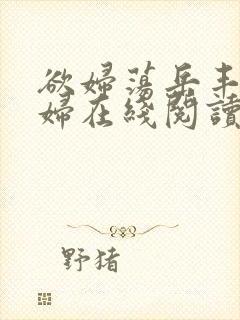 欲婦蕩岳丰
婦在綫閱讀
野猪